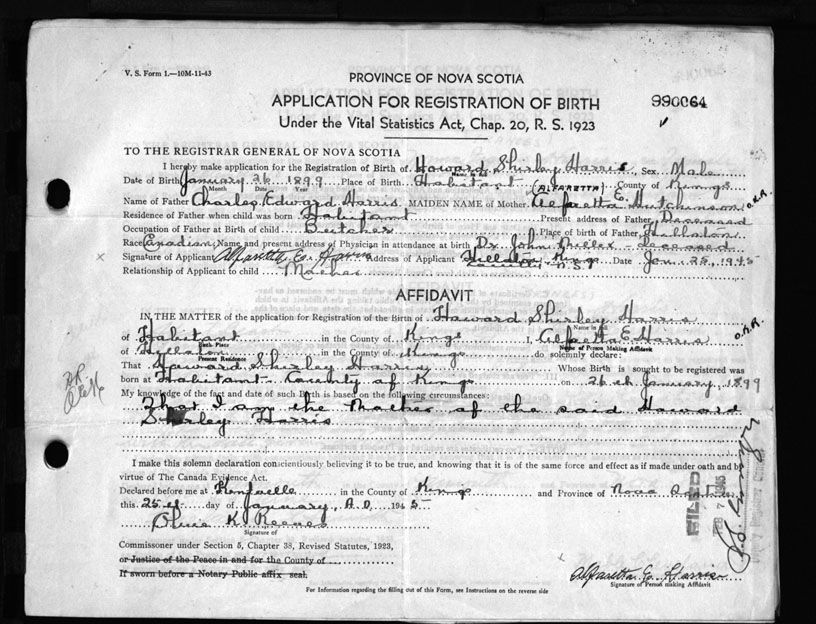 V. S. Form 1.—10M-11-43
PROVINCE OF NOVA SCOTIA
APPLICATION FOR REGISTRATION OF BIRTH
990064
Under the Vital Statistics Act, Chap. 20, R. S. 1923
TO THE REGISTRAR GENERAL OF NOVA SCOTIA
I hereby make application for the Registration of Birth of Howard Shirley Harris Sex Male
Name in full
Date of Birth January 26 1899 Place of Birth Habitant County of Kings
Month Date Year
(ALFARETTA)
Name of Father Charles Edward Harris MAIDEN NAME of Mother Alfaretta E. Hutchinson O.R.R.
Residence of Father when child was born Habitant Present address of Father Deceased
Occupation of Father at Birth of child Butcher Place of birth of Father
Race Canadian Name and present address of Physician in attendance at birth Dr. John Miller - deceased
Signature of Applicant Alfaretta E. Harris Address of Applicant Kings Date Jan 25, 1945
County N.S.
Relationship of Applicant to child Mother
AFFIDAVIT
IN THE MATTER of the application for Registration of the Birth of Howard Shirley Harris
Name in full
O.R.R.
of Habitant in the County of Kings I, Alfaretta E Harris
Birth Place Name of Person Making Affidavit
of in the County of Kings do solemnly declare:
Present Residence
That Howard Shirley Harris Whose Birth is sought to be registered was
born at Habitant County of Kings on 26th January, 1899
My knowledge of the fact and date of such Birth is based on the following circumstances:
That I am the Mother of the said Howard
Shirley Harris
I make this solemn declaration conscientiously believing it to be true, and knowing that it is of the same force and effect as if made under oath and by
virtue of The Canada Evidence Act.
Declared before me at Kentville in the County of Kings and Province of Nova Scotia
this 25th day of January, A.D. 1945
FILED
FEB 7 1945
K. Reeves
Signature of
Commissioner under Section 5, Chapter 38, Revised Statutes, 1923,
or Justice of the Peace in and for the County of
If sworn before a Notary Public affix seal.
Alfaretta E. Harris
Signature of Person making Affidavit
For Information regarding the filling out of this Form, see Instructions on the reverse side